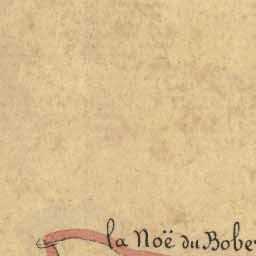 la Noë du Bober